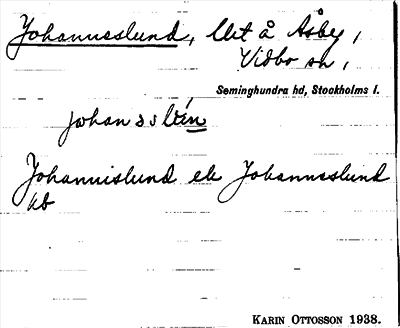 Johannesslund, Ut å Åsby,
Vidbo sn,
Seminghundra hd, Stockholms l.
johan s s
Johannislund el Johannesslund
kb
KARIN OTTOSSON 1938.